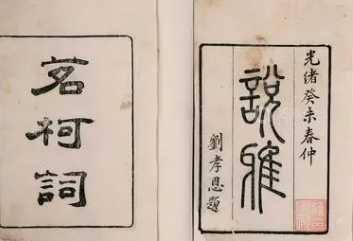 光緒癸未春仲
說雅
劉孝恩題
茗柯詞